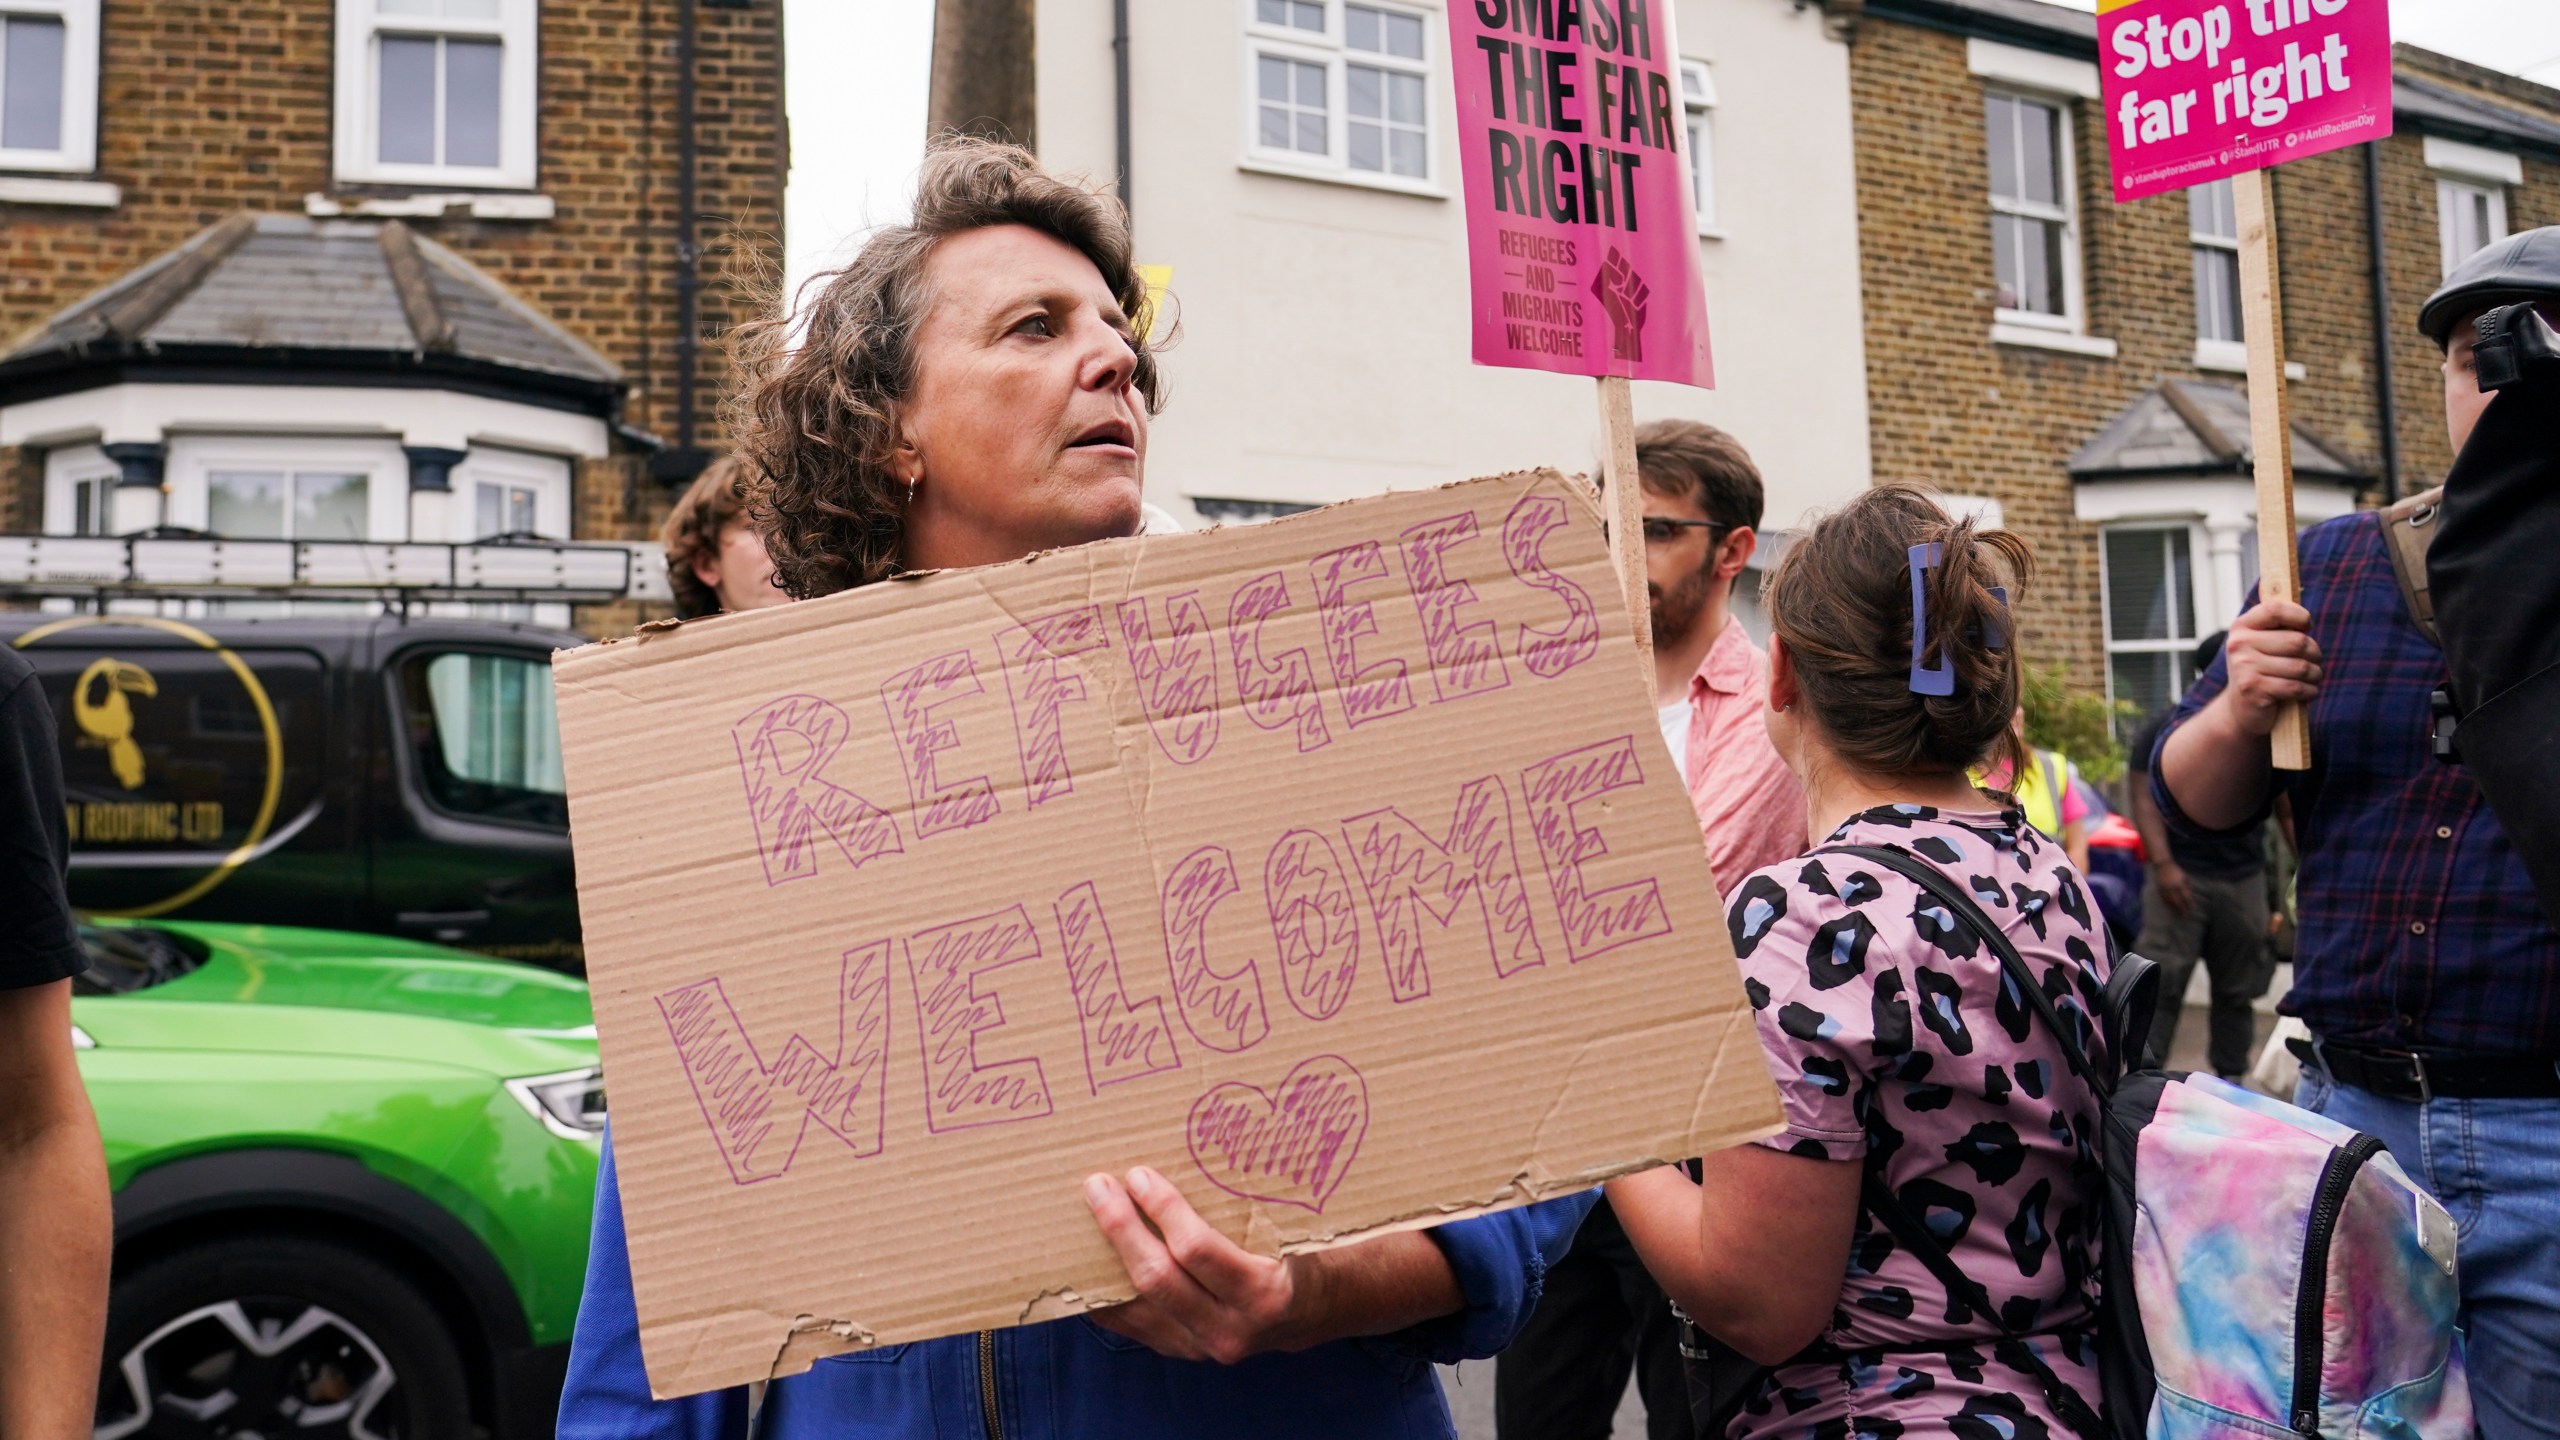 SMASH
THE FAR
RIGHT
REFUGEES
—AND—
MIGRANTS
WELCOME
Stop the
far right
standuptoracismuk @StandUTR #AntiRacismDay
REFUGEES
WELCOME
ROOFING LTD